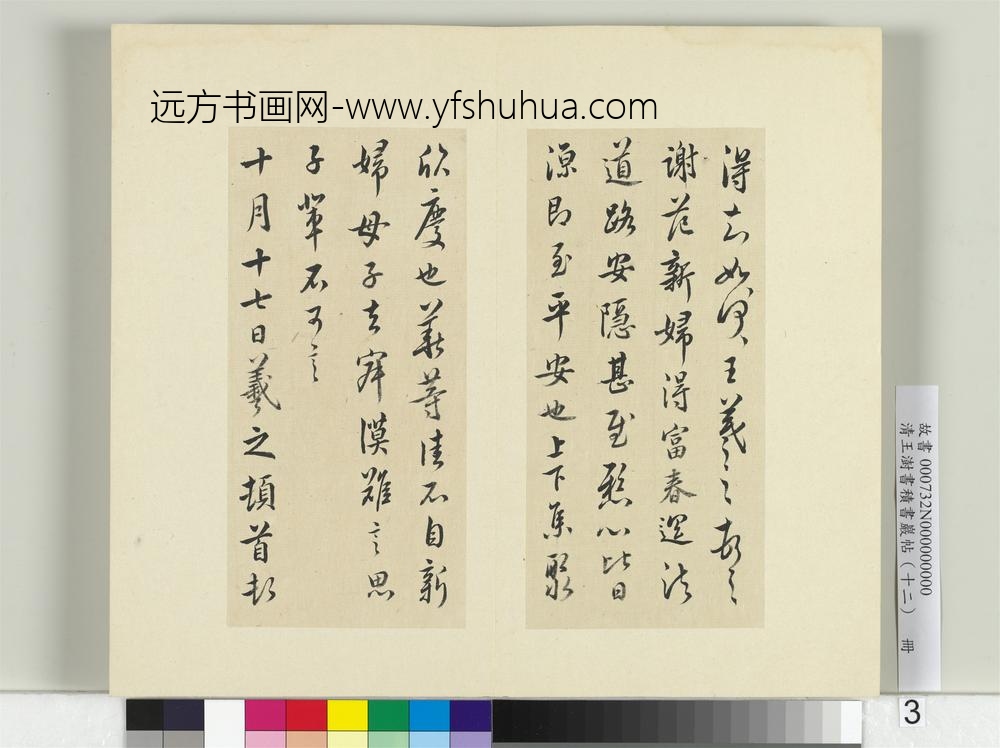 远方书画网-www.yfshuhua.com
得去如何王羲之頓首
謝范新婦得富春還諸
道路安隱甚慰心比日
源即至平安也上下集聚
欣慶也華等佳不自新
婦母子去寂漠難言思
子輩不可言
十月十七日羲之頓首
故書 000732N000000000
清王澍書積書巖帖(十二) 冊
3